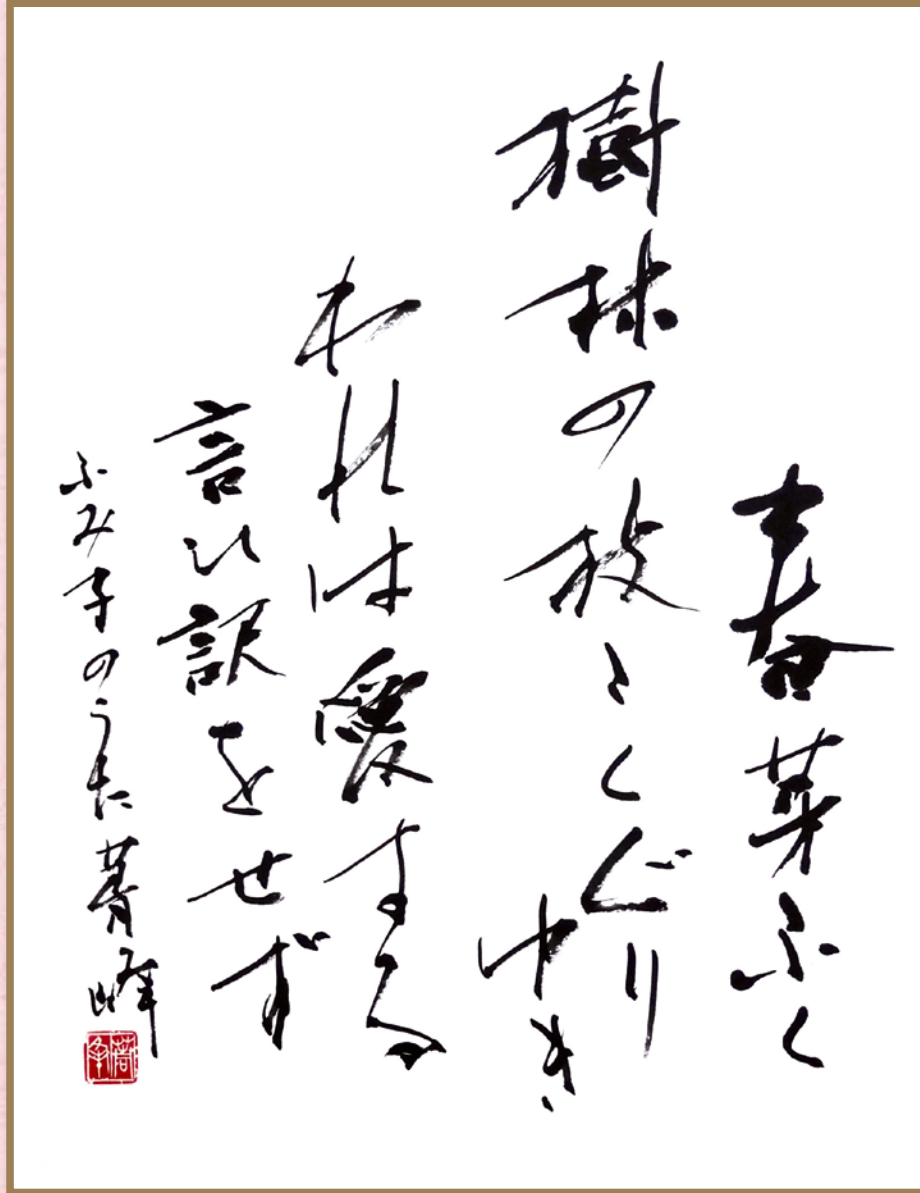 春芽ふく
樹林の枝々くぐりゆき
われは愛する
言ひ訳をせず
ふみ子のうた 菁峰